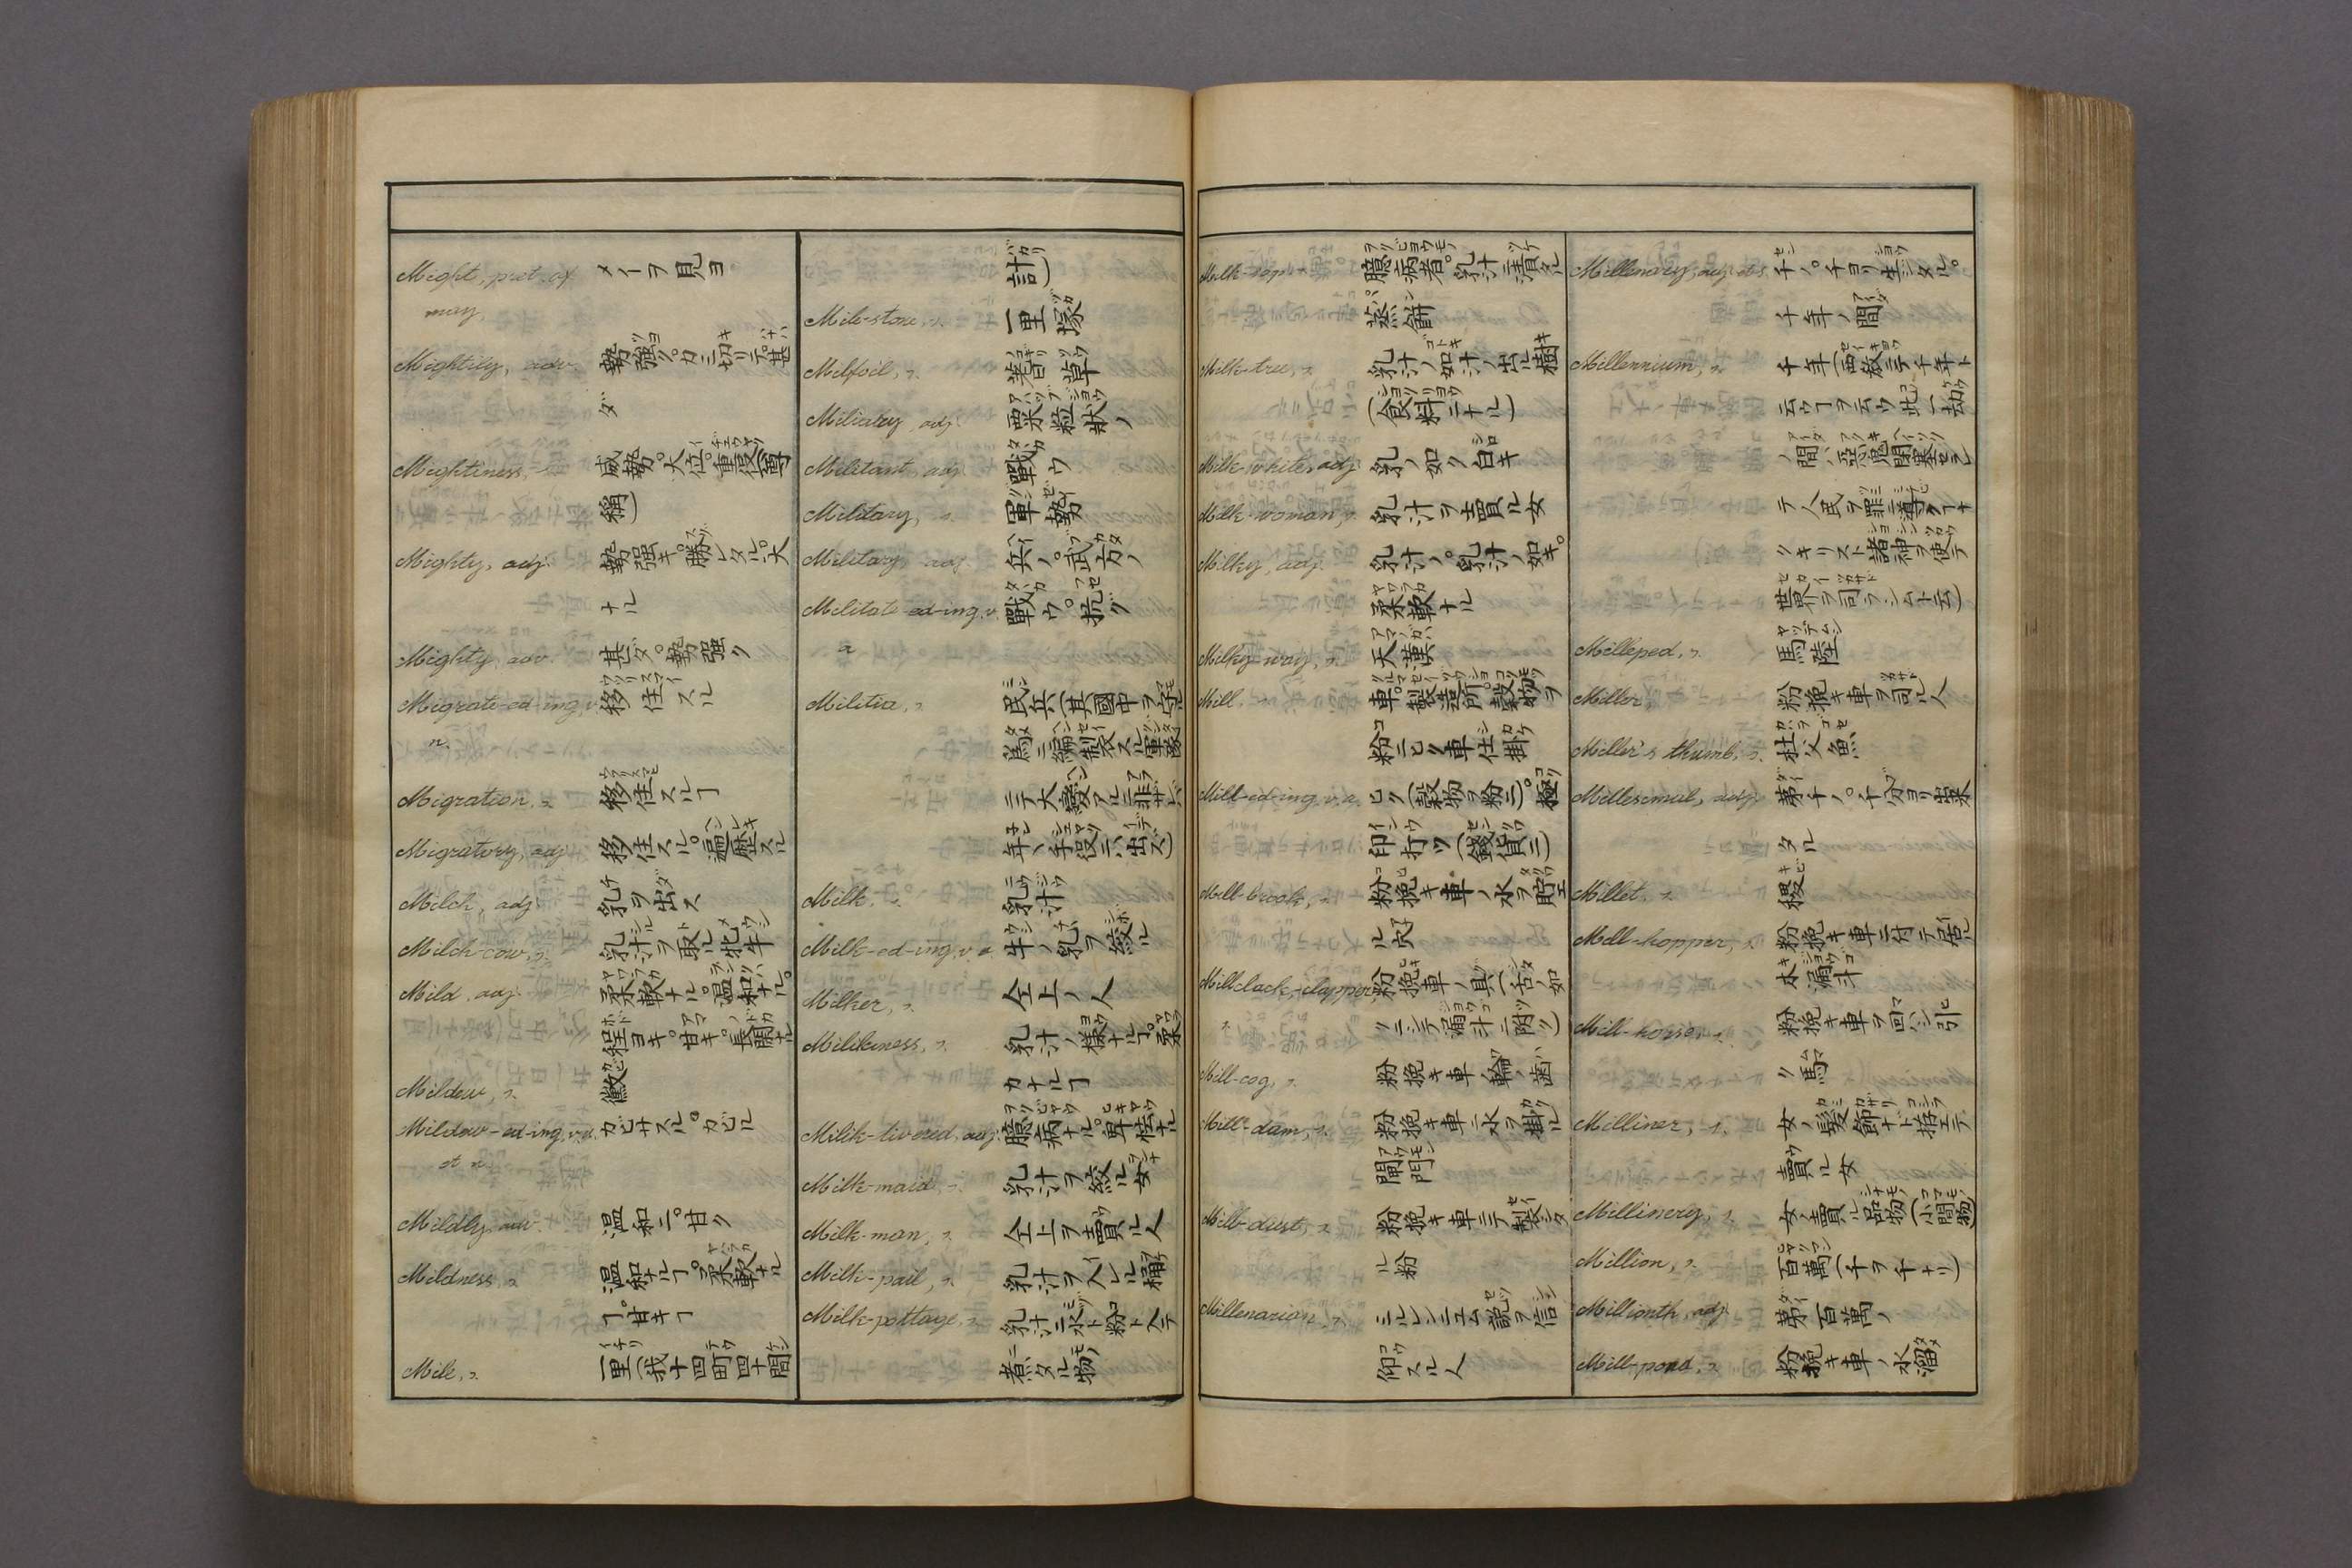 Might, pret. of メイヲ見ヨ
may.
Mightily, adv. 勢強ク。力ニ切リテ。甚
ダ
Mightiness, 威勢。大位。重役(尊
稱)
Mighty, adj. 勢強キ。勝レタル。大
ナル
Mighty, adv. 甚ダ。勢強ク
Migrate-ed-ing, v. 移住スル
n.
Migration, n. 移住スルヿ
Migratory, adj. 移住スル。遍歴スル
Milch, adj. 乳ヲ出ス
Milch-cow, n. 乳汁ヲ取ル牝牛
Mild, adj. 柔軟ナル。温和ナル。
程ヨキ。甘キ。長閑ナル
Mildew, n. 黴
Mildew-ed-ing, v.a. カビサスル。カビル
et n.
Mildly, adv. 温和ニ。甘ク
Mildness, n. 温和ナルヿ。柔軟ナル
ヿ。甘キヿ
Mile, n. 一里(我十四町四十間
計)
Mile-stone, n. 一里塚
Milfoil, n. 蓍草
Miliary, adj. 粟粒狀ノ
Militant, adj. 戰ウ
Military, n. 軍勢
Military, adj. 兵ノ。武方ノ
Militate-ed-ing, v. 戰ウ。抗グ
n.
Militia, n. 民兵(其國中ヲ守ル
爲ニ編制スル軍勢
ニテ大變アルニ非サレハ
年々手役ニハ出ズ)
Milk, n. 乳汁
Milk-ed-ing, v.a. 牛ノ乳ヲ絞ル
Milker, n. 仝上ノ人
Milkiness, n. 乳汁ノ樣ナルヿ。柔
カナルヿ
Milk-livered, adj. 臆病ナル。卑怯ナル
Milk-maid, n. 乳汁ヲ絞ル女
Milk-man, n. 仝上ヲ賣ル人
Milk-pail, n. 乳汁ヲ入ルル桶
Milk-pottage, n. 乳汁ニ水ト粉ト入テ
煮タル物
Milk-sop, 臆病者。乳汁ニ漬タル
蒸餅
Milk-tree, n. 乳汁ノ如キ汁ノ出ル樹
(食料ニナル)
Milk-white, adj. 乳ノ如ク白キ
Milk-woman, n. 乳汁ヲ賣ル女
Milky, adj. 乳汁ノ。乳汁ノ如キ。
柔軟ナル
Milky-way, n. 天漢
Mill, n. 車。製造所。穀物ヲ
粉ニヒク車仕掛
Mill-ed-ing, v.a. ヒク(穀物ヲ粉ニ)。極
印打ツ(錢貨ニ)
Mill-brook, n. 粉挽キ車ノ水ヲ貯エ
ル穴
Mill-clack,-clapper, 粉挽車ノ具(舌ノ如
n. クニシテ漏斗ニ附ク)
Mill-cog, n. 粉挽キ車ノ輪ノ齒
Mill-dam, n. 粉挽キ車ニ水ヲ掛ル
閘門
Mill-dust, n. 粉挽キ車ニテ製シタ
ル粉
Millenarian, n. ミルレンニエム説ヲ信
仰スル人
Millenary, adj. et s. 千ノ。千ヨリ生シタル。
千年ノ間
Millennium, n. 千年(西教ニテ千年ト
云ウヿヲ云ウ此一劫
ノ間ハ惡心閉塞セラレ
テ人民ヲ罪ニ導クヿナ
クキリスト諸神ヲ使テ
世界ヲ司ラシムト云)
Milleped, n. 馬陸
Miller, 粉挽キ車ヲ司ル人
Miller's thumb, n. 杜父魚
Millesimal, adj. 第千ノ。千分ヨリ出來
タル
Millet, n. 稷
Mill-hopper, n. 粉挽キ車ニ付テ居ル
木漏斗
Mill-horse, n. 粉挽キ車ヲ回ハシ引
ク馬
Milliner, s. 女ノ髮飾ナド拵エテ
賣ル女
Millinery, n. 女ノ賣ル品物(小間物)
Million, n. 百萬(千ヲ千ナリ)
Millionth, adj. 第百萬ノ
Mill-pond, n. 粉挽キ車ノ水溜